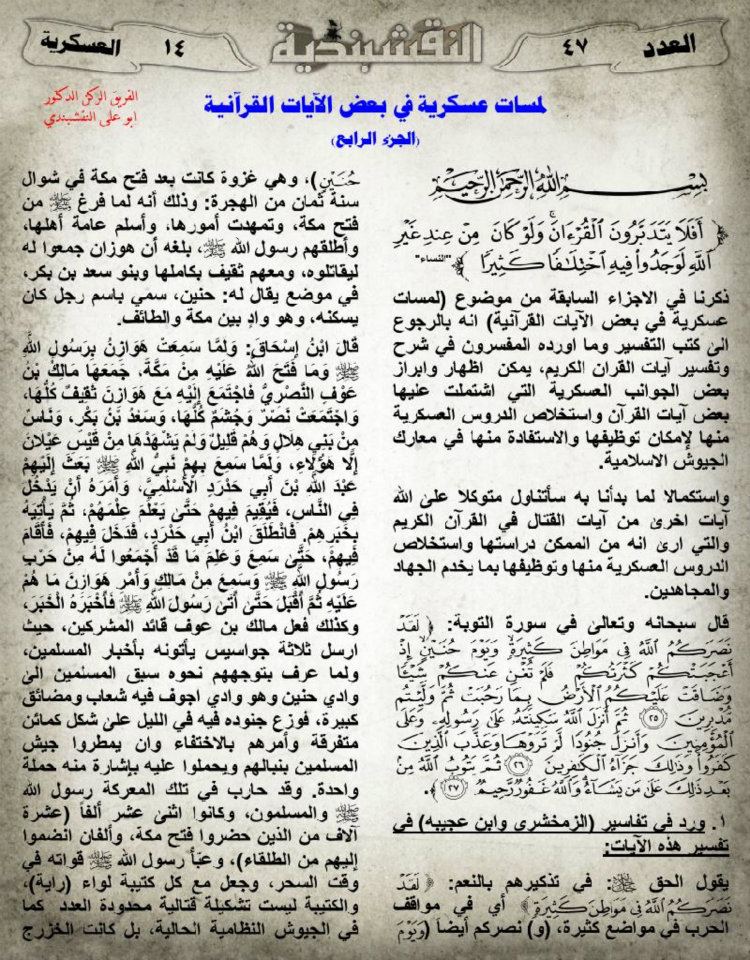 العدد
٤٧
النقشبندية
١٤
العسكرية
لمسات عسكرية في بعض الآيات القرآنية
(الجزء الرابع)
الفريق الركن الدكتور
ابو علي النقشبندي
بسم الله الرحمن الرحيم
﴿ أَفَلَا يَتَدَبَّرُونَ الْقُرْءَانَ ۚ وَلَوْ كَانَ مِنْ عِندِ غَيْرِ
اللَّهِ لَوَجَدُوا فِيهِ اخْتِلَافًا كَثِيرًا ﴾ "النساء"
ذكرنا في الاجزاء السابقة من موضوع (لمسات
عسكرية في بعض الآيات القرآنية) انه بالرجوع
الى كتب التفسير وما اورده المفسرون في شرح
وتفسير آيات القران الكريم، يمكن اظهار وابراز
بعض الجوانب العسكرية التي اشتملت عليها
بعض آيات القرآن واستخلاص الدروس العسكرية
منها لإمكان توظيفها والاستفادة منها في معارك
الجيوش الاسلامية.
واستكمالا لما بدأنا به سأتناول متوكلا على الله
آيات اخرى من آيات القتال في القرآن الكريم
والتي ارى انه من الممكن دراستها واستخلاص
الدروس العسكرية منها وتوظيفها بما يخدم الجهاد
والمجاهدين.
قال سبحانه وتعالى في سورة التوبة: ﴿ لَقَدْ
نَصَرَكُمُ اللَّهُ فِي مَوَاطِنَ كَثِيرَةٍ ۙ وَيَوْمَ حُنَيْنٍ ۙ إِذْ
أَعْجَبَتْكُمْ كَثْرَتُكُمْ فَلَمْ تُغْنِ عَنكُمْ شَيْئًا
وَضَاقَتْ عَلَيْكُمُ الْأَرْضُ بِمَا رَحُبَتْ ثُمَّ وَلَّيْتُم
مُّدْبِرِينَ ٢٥ ثُمَّ أَنزَلَ اللَّهُ سَكِينَتَهُ عَلَىٰ رَسُولِهِ وَعَلَى
الْمُؤْمِنِينَ وَأَنزَلَ جُنُودًا لَّمْ تَرَوْهَا وَعَذَّبَ الَّذِينَ
كَفَرُوا ۚ وَذَٰلِكَ جَزَاءُ الْكَافِرِينَ ٢٦ ثُمَّ يَتُوبُ اللَّهُ مِن
بَعْدِ ذَٰلِكَ عَلَىٰ مَن يَشَاءُ ۗ وَاللَّهُ غَفُورٌ رَّحِيمٌ ٢٧ ﴾.
١. ورد في تفاسير (الزمخشري وابن عجيبه) في
تفسير هذه الآيات:
يقول الحق ﷻ: في تذكيرهم بالنعم: ﴿ لَقَدْ
نَصَرَكُمُ اللَّهُ فِي مَوَاطِنَ كَثِيرَةٍ ﴾ أي في مواقف
الحرب في مواضع كثيرة، (و) نصركم أيضاً (وَيَوْمَ
حُنَيْنٍ)، وهي غزوة كانت بعد فتح مكة في شوال
سنة ثمان من الهجرة: وذلك أنه لما فرغ ﷺ من
فتح مكة، وتمهدت أمورها، وأسلم عامة أهلها،
وأطلقهم رسول الله ﷺ، بلغه أن هوزان جمعوا له
ليقاتلوه، ومعهم ثقيف بكاملها وبنو سعد بن بكر،
في موضع يقال له: حنين، سمي باسم رجل كان
يسكنه، وهو وادٍ بين مكة والطائف.
قَالَ ابْنُ إِسْحَاقَ: وَلَمَّا سَمِعَتْ هَوَازِنُ بِرَسُولِ اللَّهِ
ﷺ وَمَا فَتَحَ اللَّهُ عَلَيْهِ مِنْ مَكَّةَ، جَمَعَهَا مَالِكُ بْنُ
عَوْفٍ النَّصْرِيُّ فَاجْتَمَعَ إِلَيْهِ مَعَ هَوَازِنَ ثَقِيفٌ كُلُّهَا،
وَاجْتَمَعَتْ نَصْرٌ وَجُشَمٌ كُلُّهَا، وَسَعْدُ بْنُ بَكْرٍ، وَنَاسٌ
مِنْ بَنِي هِلَالٍ وَهُمْ قَلِيلٌ وَلَمْ يَشْهَدْهَا مِنْ قَيْسِ عَيْلَانَ
إِلَّا هَؤُلَاءِ، وَلَمَّا سَمِعَ بِهِمْ نَبِيُّ اللَّهِ ﷺ بَعَثَ إِلَيْهِمْ
عَبْدَ اللَّهِ بْنَ أَبِي حَدْرَدٍ الْأَسْلَمِيَّ، وَأَمَرَهُ أَنْ يَدْخُلَ
فِي النَّاسِ، فَيُقِيمَ فِيهِمْ حَتَّى يَعْلَمَ عِلْمَهُمْ، ثُمَّ يَأْتِيَهُ
بِخَبَرِهِمْ. فَانْطَلَقَ ابْنُ أَبِي حَدْرَدٍ، فَدَخَلَ فِيهِمْ، فَأَقَامَ
فِيهِمْ، حَتَّى سَمِعَ وَعَلِمَ مَا قَدْ أَجْمَعُوا لَهُ مِنْ حَرْبِ
رَسُولِ اللَّهِ ﷺ وَسَمِعَ مِنْ مَالِكٍ وَأَمْرِ هَوَازِنَ مَا هُمْ
عَلَيْهِ ثُمَّ أَقْبَلَ حَتَّى أَتَى رَسُولَ اللَّهِ ﷺ فَأَخْبَرَهُ الْخَبَرَ،
وكذلك فعل مالك بن عوف قائد المشركين، حيث
ارسل ثلاثة جواسيس يأتونه بأخبار المسلمين،
ولما عرف بتوجههم نحوه سبق المسلمين الى
وادي حنين وهو وادي اجوف فيه شعاب ومضائق
كبيرة، فوزع جنوده فيه في الليل على شكل كمائن
متفرقة وأمرهم بالاختفاء وان يمطروا جيش
المسلمين بنبالهم ويحملوا عليه بإشارة منه حملة
واحدة. وقد حارب في تلك المعركة رسول الله
ﷺ والمسلمون، وكانوا اثنى عشر ألفاً (عشرة
آلاف من الذين حضروا فتح مكة، وألفان انضموا
إليهم من الطلقاء)، وعبّأ رسول الله ﷺ قواته في
وقت السحر، وجعل مع كل كتيبة لواء (راية)،
والكتيبة ليست تشكيلة قتالية محدودة العدد كما
في الجيوش النظامية الحالية، بل كانت الخزرج